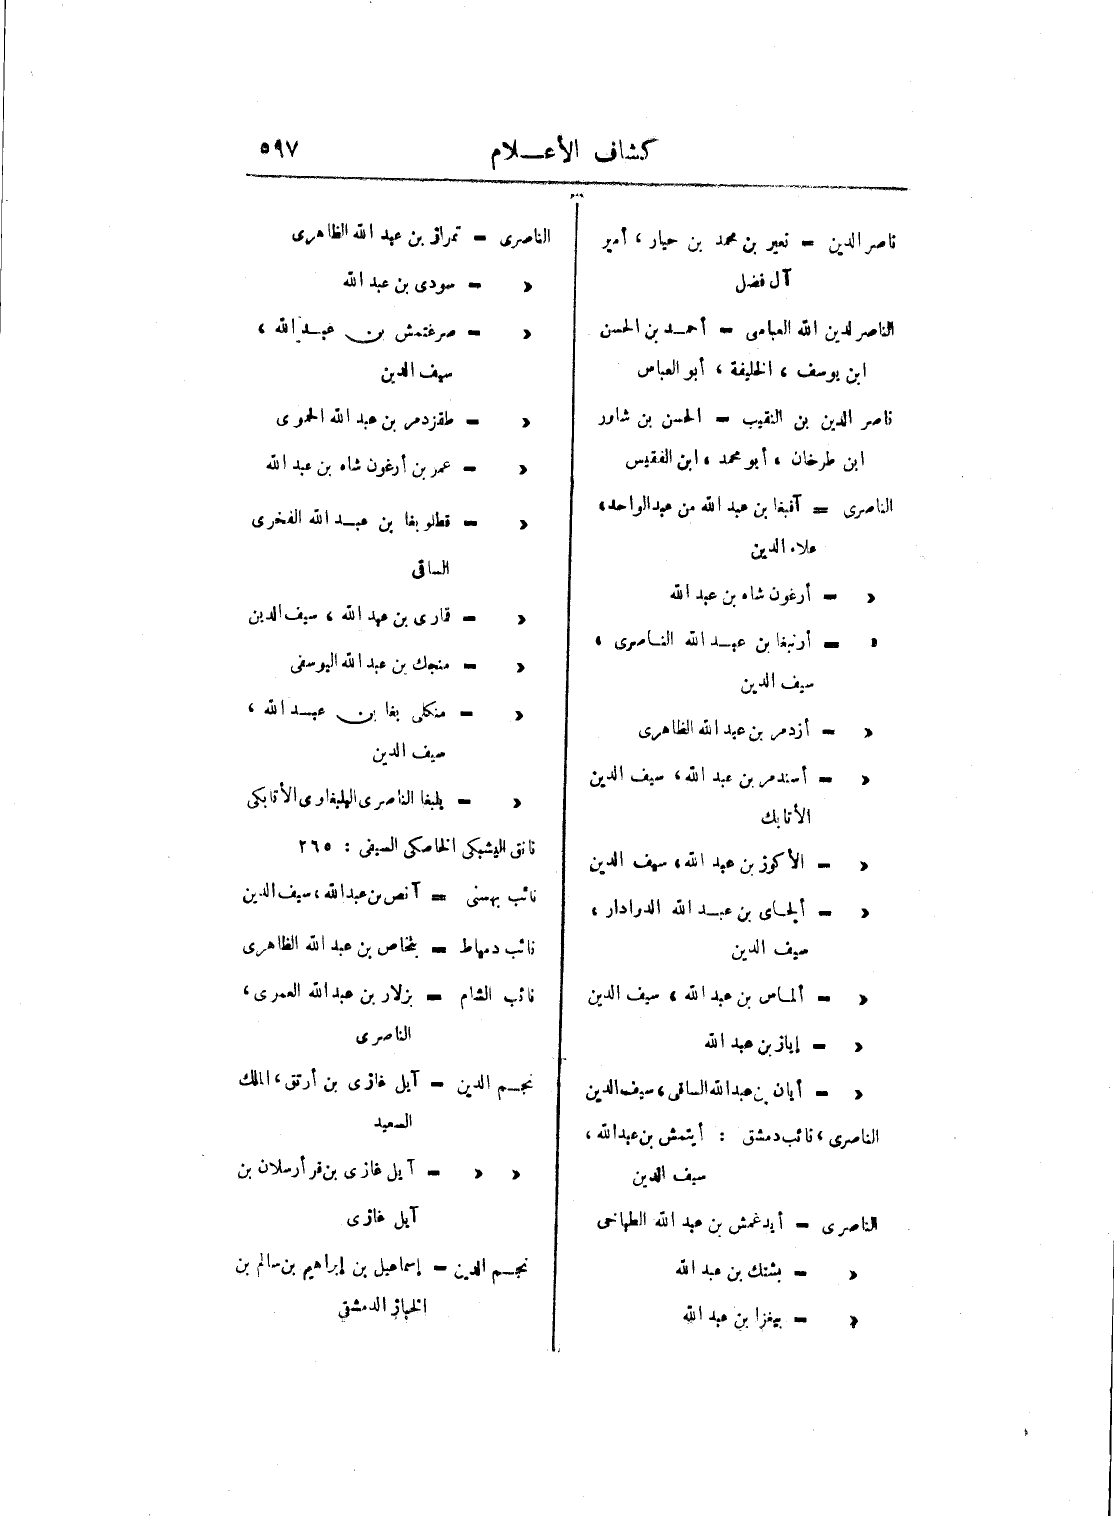 كشاف الأعـــلام
٥٩٧
ناصر الدين = نعير بن محمد بن حيار ، أمير
آل فضل
الناصر لدين الله العباسى = أحمـد بن الحسن
ابن يوسف ، الخليفة ، أبو العباس
ناصر الدين بن النقيب = الحسن بن شاور
ابن طرخان ، أبو محمد ، ابن الفقيس
الناصرى = آقبغا بن عبد الله من عبد الواحد،
علاء الدين
« = أرغون شاه بن عبد الله
« = أرنبغا بن عبـد الله النـاصرى ،
سيف الدين
« = أزدمر بن عبد الله الظاهرى
« = أسندمر بن عبد الله ، سيف الدين
الأتابك
« = الأكوز بن عبد الله ، سيف الدين
« = ألجـاى بن عبـد الله الدوادار ،
سيف الدين
« = ألمـاس بن عبد الله ، سيف الدين
« = إياز بن عبد الله
« = أيان بن عبد الله الساقى ، سيف الدين
الناصرى ، نائب دمشق : أيتمش بن عبد الله ،
سيف الدين
الناصرى = أيدغمش بن عبد الله الطباخى
« = بشتك بن عبد الله
« = بيغرا بن عبد الله
الناصرى = تمراز بن عبد الله الظاهرى
« = سودى بن عبد الله
« = صرغتمش بن عبـد الله ،
سيف الدين
« = طقزدمر بن عبد الله الحموى
« = عمر بن أرغون شاه بن عبد الله
« = قطلوبغا بن عبـد الله الفخرى
الساقى
« = قمارى بن عبد الله ، سيف الدين
« = منجك بن عبد الله اليوسفى
« = منكلى بغا بن عبـد الله ،
سيف الدين
« = يلبغا الناصرى اليلبغاوى الأتابكى
نانق اليشبكى الخاصكى السيفى : ٢٦٥
نائب بهسنى = آنص بن عبد الله ، سيف الدين
نائب دمياط = بتخاص بن عبد الله الظاهرى
نائب الشام = بزلار بن عبد الله العمرى ،
الناصرى
نجـم الدين = آيل غازى بن أرتق ، الملك
السعيد
« « = آيل غازى بن قر أرسلان بن
آيل غازى
نجـم الدين = إسماعيل بن إبراهيم بن سالم بن
الخباز الدمشقى